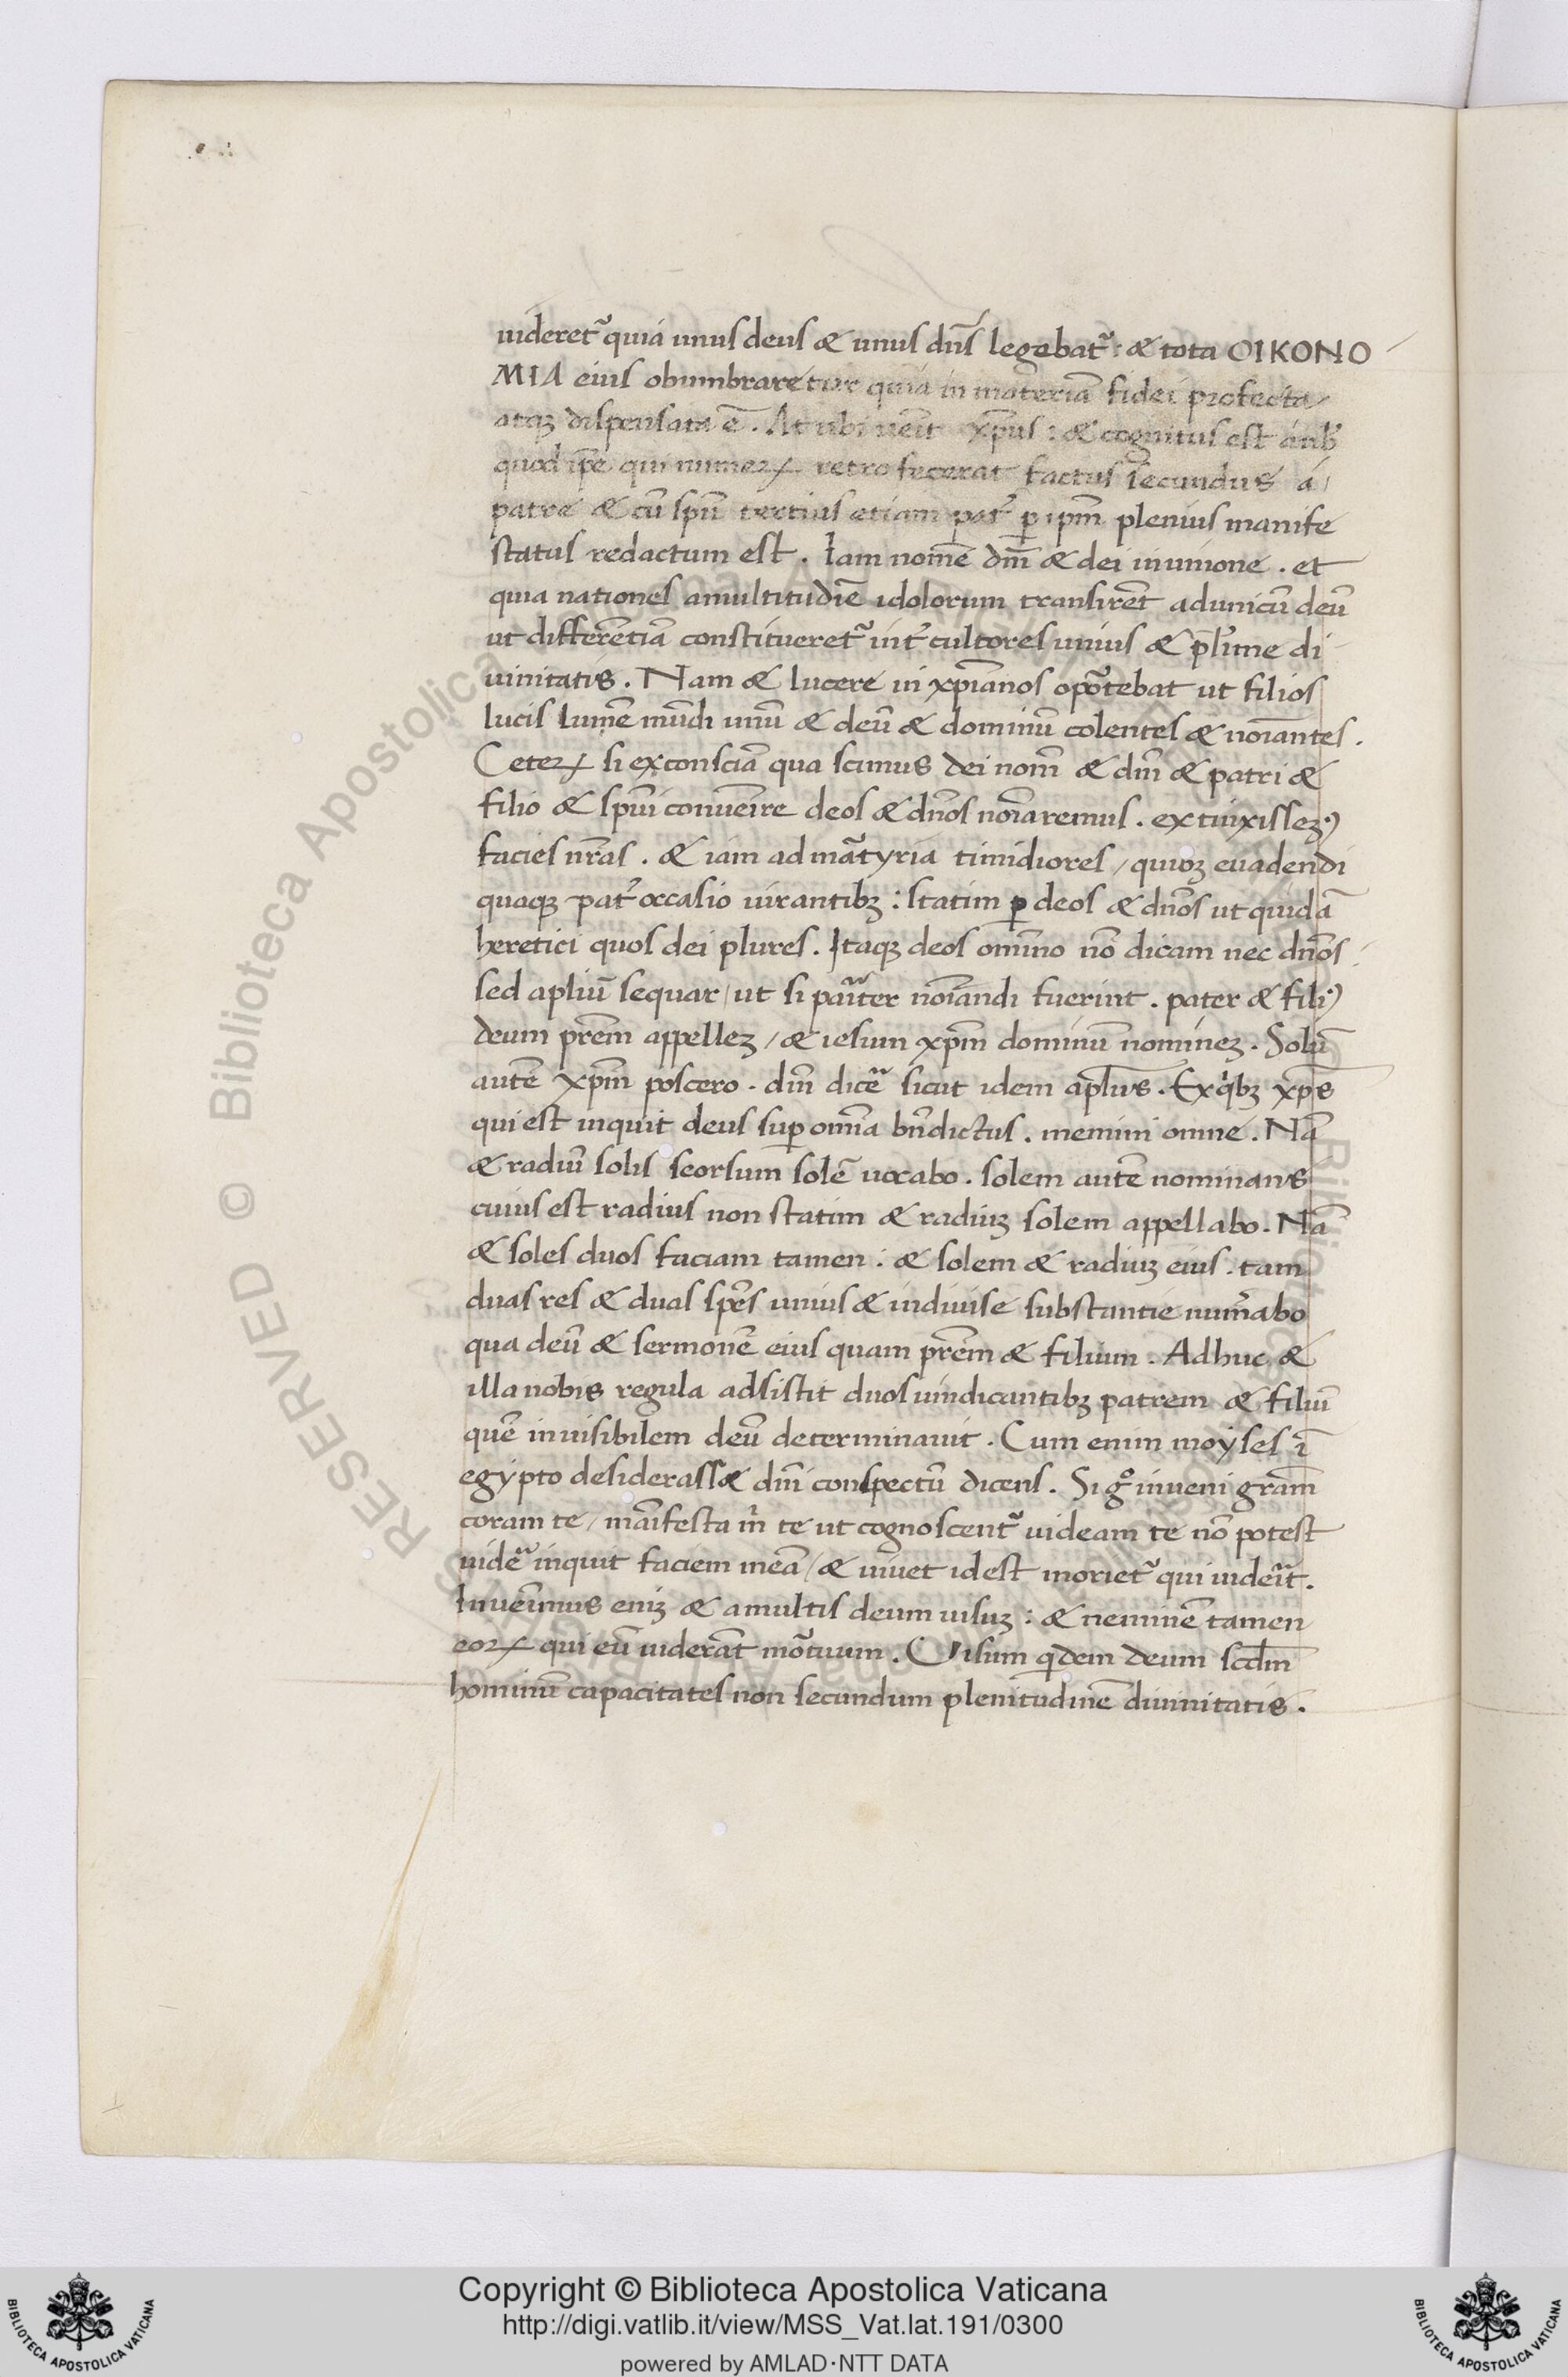 uideret᷑ quia unus deus & unus dn̄s legebat᷑ : & tota OIKONO
MIA eius obumbraretur quia in materiā fidei profecta /
atqꝫ dispensata ē . At ubi uēit xp̄us : & cognitus est
quod ip̄e qui numeꝝ retro fecerat factus secundus á /
patre & cū spū tertius etiam pat᷑ ꝑ ip̄m plenius manife
status redactum est . Iam nomē dn̄i & dei in unione . et
quia nationes amultitudīe idolorum transirēt adunicū deū
ut differētia constitueret᷑ int᷑ cultores unius & plr̄ime di
uinitatis . Nam & lucere in xp̄ianos opo᷑tebat ut filios
lucis lumē mūdi unū & deū & dominū colentes & noīantes .
Ceteꝝ si exconsciā qua scimus dei nom̄ & dn̄i & patri &
filio & spūi conuēire deos & dn̄os noīaremus . extinxisseꝫꝰ
facies nr̄as . & iam ad ma᷑tyria timidiores / quioꝫ euadendi
quaqꝫ pat᷑ occasio iurantibꝫ : statim ꝑ deos & dn̄os ut quidā
heretici quos dei plures . Itaqꝫ deos omīno nō dicam nec dn̄os .
sed aplūᷤ sequar / ut si pariter noīandi fuerint . pater & filiꝰ
deum prēm appelleꝫ / & iesum xp̄m dominū nomineꝫ . Solū
autē xp̄m poscero . dn̄i dicē᷑ sicut idem aplus . Exqͥbꝫ xp̄s
qui est inquit deus suꝑ omīa bn̄dictus . memini omne . Nā
& radiū solis seorsum solē uocabo . solem autē nominans
cuius est radius non statim & radiuꝫ solem appellabo . Nā
& soles duos faciam tamen : & solem & radiuꝫ eius . tam
duas res & duas spēs unius & indiuise substantie num᷑abo
qua deū & sermonē eius quam prēm & filium . Adhuc &
illa nobis regula adsistit duos uindicantibꝫ patrem & filiū
quē inuisibilem deū determinauit . Cum enim moyses ī
egypto desiderass& dn̄i conspectū dicens . Si gͦ inueni grām
coram te / manifesta m̄ te ut cognoscent᷑ uideam te nō potest
uidē᷑ inquit faciem meā / & uiuet idest moriet᷑ qui uiderit .
Inueīmus eniꝫ & amultis deum uisuꝫ : & neminē tamen
eoꝝ qui eū uiderāt mo᷑tuum . Uisum qͥdem deum scd̄m
hominū capacitates non secundum plenitudinē diuinitatis .
© Biblioteca Apostolica
RESERVED
Copyright © Biblioteca Apostolica Vaticana
http://digi.vatlib.it/view/MSS_Vat.lat.191/0300
powered by AMLAD·NTT DATA
BIBLIOTECA APOSTOLICA VATICANA
BIBLIOTECA APOSTOLICA VATICANA